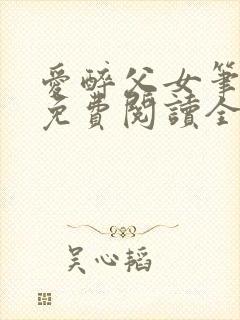 愛醉父女筆
免費閱讀全
吴心韬